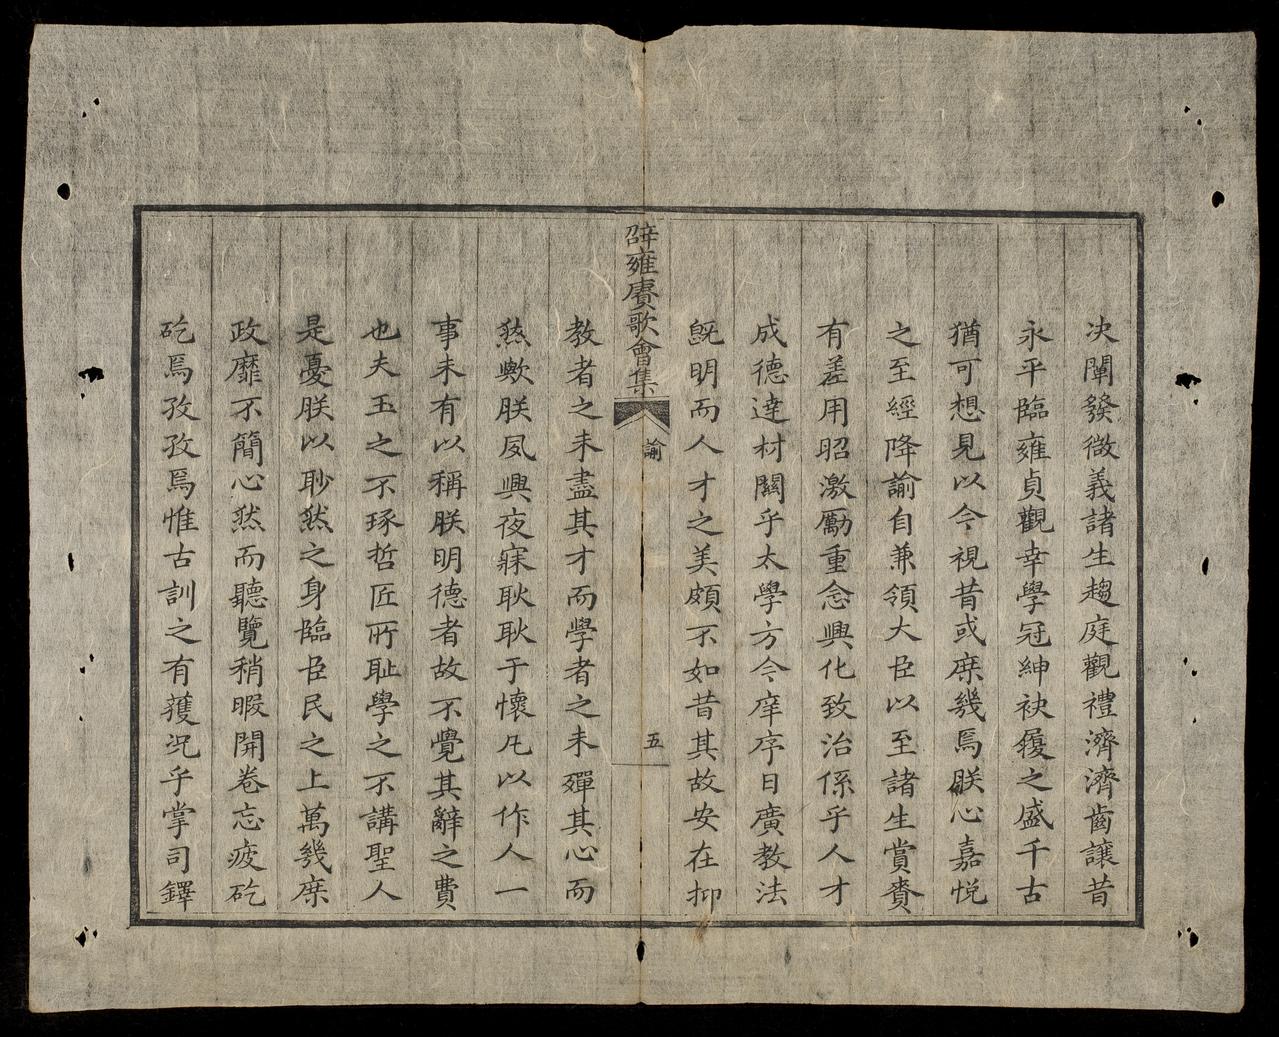 决闡發微義諸生趨庭觀禮濟濟齒讓昔
永平臨雍貞觀幸學冠紳袂履之盛千古
猶可想見以今視昔或庶幾焉朕心嘉悦
之至經降諭自兼領大臣以至諸生賞賚
有差用昭激勵重念興化致治係乎人才
成德達材關乎太學方今庠序日廣教法
旣明而人才之美頗不如昔其故安在抑
辟雍賡歌會集
諭
五
教者之未盡其才而學者之未殫其心而
然歟朕夙興夜寐耿耿于懷凡以作人一
事未有以稱朕明德者故不覺其辭之費
也夫玉之不琢哲匠所耻學之不講聖人
是憂朕以眇然之身臨臣民之上萬幾庶
政靡不簡心然而聽覽稍暇開卷忘疲矻
矻焉孜孜焉惟古訓之有獲况乎掌司鐸